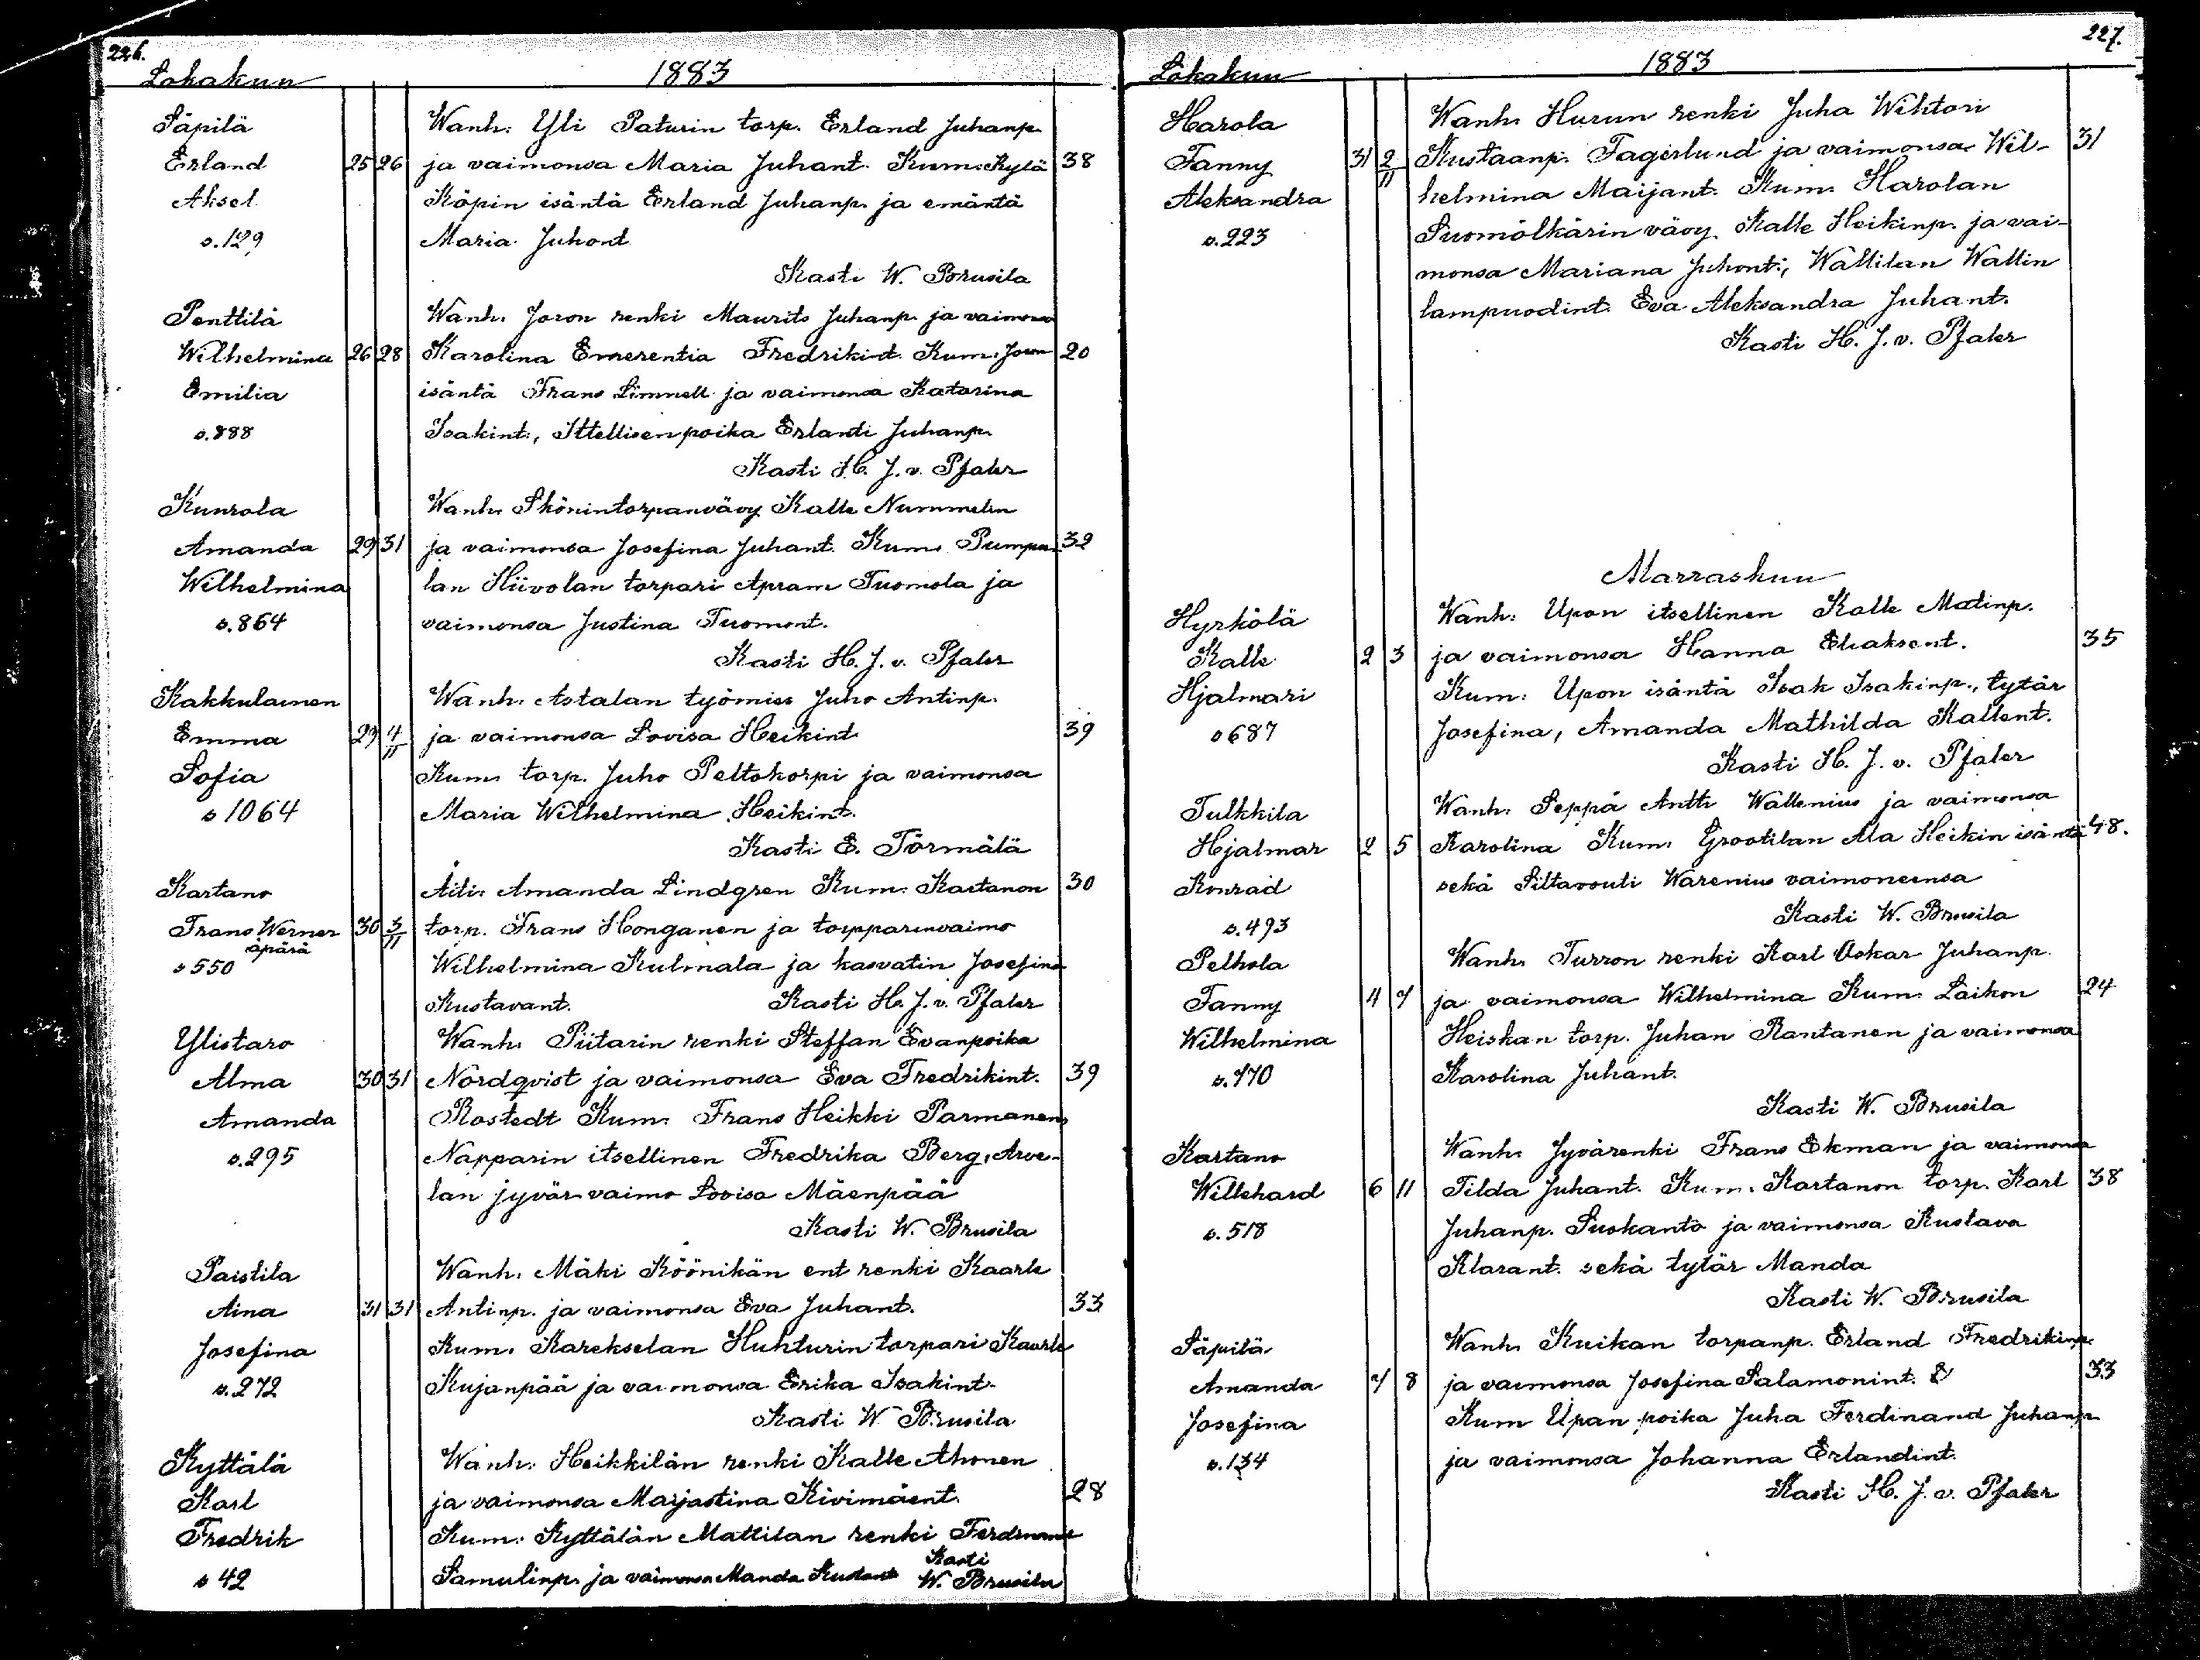 226.
Lokakuu 1883
Säpilä Wanh. Yli Paturin torp. Erland Juhanp.
Erland 25 26 ja vaimonsa Maria Juhant. Kum. Kylä 38
Aksel Köpin isäntä Erland Juhanp. ja emäntä
s. 129 Maria Juhont
Kasti W. Brusila
Penttilä Wanh. Joron renki Maurits Juhanp. ja vaimonsa
Wilhelmina 26 28 Karolina Emerentia Fredrikint. Kum. Joron 20
Emilia isäntä Frans Limnell ja vaimonsa Katarina
s. 888 Isakint., Ittellisenpoika Erlanti Juhanp.
Kasti H. J. v. Pfaler
Kunrola Wanh. Skönintorpanvävy Kalle Nummelin
Amanda 29 31 ja vaimonsa Josefina Juhant. Kum. Pumpu 32
Wilhelmina lan Hiivolan torpari Apram Tuomola ja
s. 864 vaimonsa Justina Tuomont.
Kasti H. J. v. Pfaler
Kakkulainen Wanh. Astalan työmies Juho Antinp.
Emma 29 4/11 ja vaimonsa Lovisa Heikint. 39
Sofia Kum. torp. Juho Peltokorpi ja vaimonsa
s 1064 Maria Wilhelmina Heikint.
Kasti E. Törmälä
Kartano Äiti: Amanda Lindgren Kum. Kartanon 30
Frans Werner 30 3/11 torp. Frans Honganen ja torpparinvaimo
äpärä
s 550 Wilhelmina Kulmala ja kasvatin Josefina
Kustavant. Kasti H. J. v. Pfaler
Ylistaro Wanh. Piitarin renki Steffan Evanpoika
Alma 30 31 Nordqvist ja vaimonsa Eva Fredrikint. 39
Amanda Rostedt Kum. Frans Heikki Parmanen
s. 295 Napparin itsellinen Fredrika Berg, Arve-
lan jyvär vaimo Lovisa Mäenpää
Kasti W. Brusila
Paistila Wanh. Mäki Köönikän ent renki Kaarle
Aina 31 31 Antinp. ja vaimonsa Eva Juhant. 33
Josefina Kum. Karekselan Huhturin torpari Kaarle
s. 272 Kujanpää ja vaimonsa Erika Isakint.
Kasti W. Brusila
Kyttälä Wanh. Heikkilän renki Kalle Ahonen
Karl ja vaimonsa Marjastina Kivimäent. 28
Fredrik Kum. Kyttälän Mattilan renki Ferdinand
s 42 Samulinp. ja vaimonsa Manda Kustant Kasti
W. Brusila
227.
Lokakuu 1883
Harola Wanh. Hurun renki Juha Wihtori
Fanny 31 2/11 Kustaanp. Fagerlund ja vaimonsa Wil- 31
Aleksandra helmina Maijant. Kum. Harolan
s. 223 Suomölkärin vävy Kalle Heikinp. ja vai-
monsa Mariana Juhont., Wallilan Wallin
lampuodint. Eva Aleksandra Juhant.
Kasti H. J. v. Pfaler
Marraskuu
Hyrkölä Wanh. Upon itsellinen Kalle Matinp.
Kalle 2 3 ja vaimonsa Hanna Eliaksent. 35
Hjalmari Kum: Upon isäntä Isak Isakinp., tytär
s 687 Josefina, Amanda Mathilda Kallent.
Kasti H. J. v. Pfaler
Tulkkila Wanh. Seppä Antti Wallenius ja vaimonsa
Hjalmar 2 5 Karolina Kum. Grootilan Ala Heikin isäntä 48.
Konrad sekä Siltavouti Warenius vaimoneensa
s. 493 Kasti W. Brusila
Pelhola Wanh. Turron renki Karl Oskar Juhanp.
Fanny 4 7 ja vaimonsa Wilhelmina Kum. Laikon 24
Wilhelmina Heiskan torp. Juhan Rantanen ja vaimonsa
s. 770 Karolina Juhant.
Kasti W. Brusila
Kartano Wanh. Jyvärenki Frans Ekman ja vaimonsa
Willehard 6 11 Tilda Juhant. Kum. Kartanon torp. Karl 38
s. 518 Juhanp. Suokanto ja vaimonsa Kustava
Klarant. sekä tytär Manda
Kasti W. Brusila
Säpilä Wanh. Kuikan torpanp. Erland Fredrikinp.
Amanda 7 8 ja vaimonsa Josefina Salamonint. 33
Josefina Kum Upan poika Juha Ferdinand Juhanp
s. 134 ja vaimonsa Johanna Erlandint.
Kasti H. J. v. Pfaler